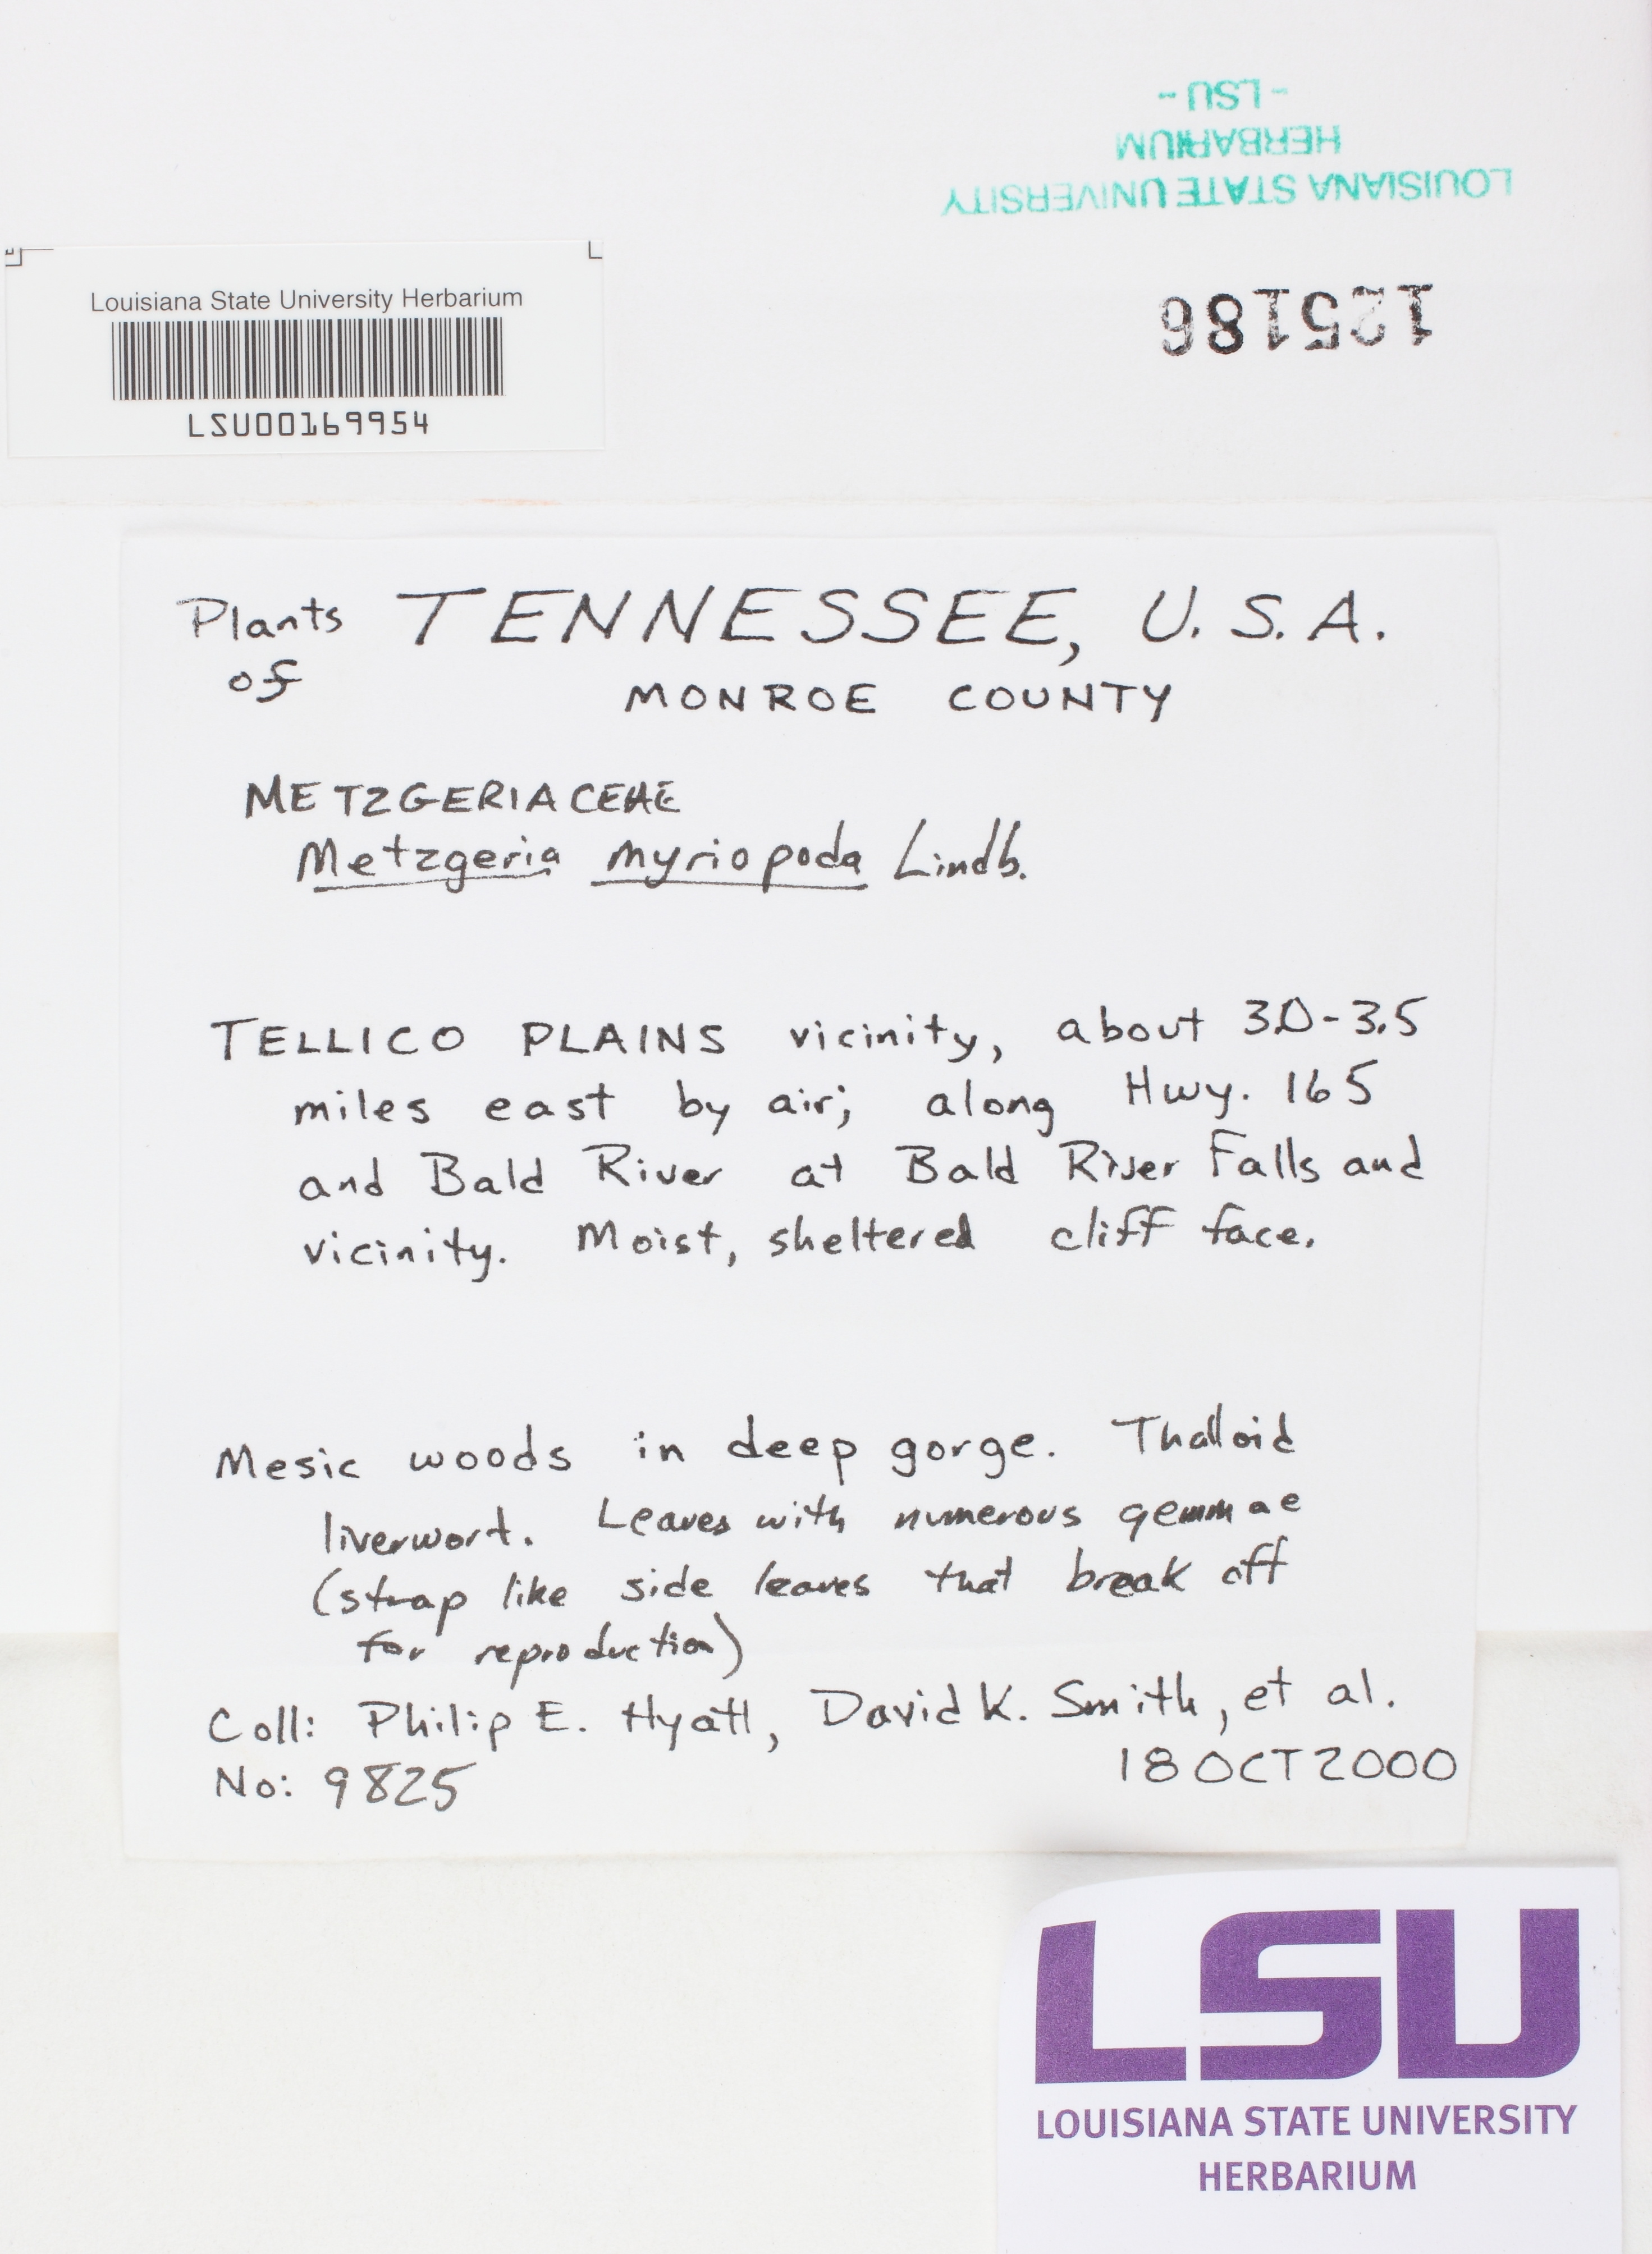 LOUISIANA STATE UNIVERSITY
HERBARIUM
- LSU -
125186
Louisiana State University Herbarium
LSU00169954
Plants of TENNESSEE, U.S.A.
MONROE COUNTY
METZGERIACEAE
Metzgeria myriopoda Lindb.
TELLICO PLAINS vicinity, about 3.0-3.5
miles east by air; along Hwy. 165
and Bald River at Bald River Falls and
vicinity. Moist, sheltered cliff face.
Mesic woods in deep gorge. Thalloid
liverwort. Leaves with numerous gemmae
(strap like side leaves that break off
for reproduction)
Coll: Philip E. Hyatt, David K. Smith, et al.
No: 9825 18 OCT 2000
LSU
LOUISIANA STATE UNIVERSITY
HERBARIUM